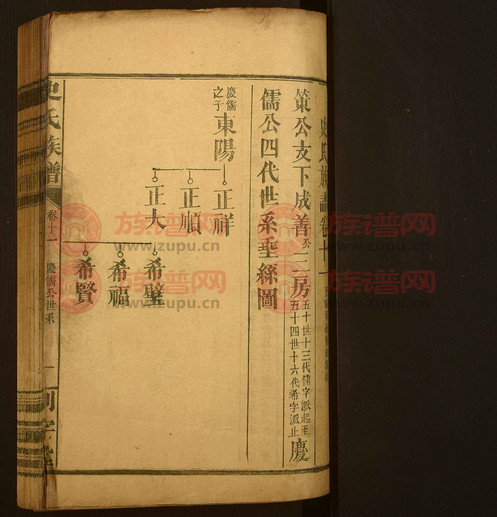 史氏族譜卷十一
策公支下成善公三房五十世十三代儒字派起至五十四世十六代希字派止慶
儒公四代世系垂絲圖
慶儒之子 東陽
正祥
正順
正大
希璧
希福
希賢
史氏族譜 卷十一 慶儒公世系 一
族谱网
www.zupu.cn
族谱网
www.zupu.cn
族谱网
www.zupu.cn